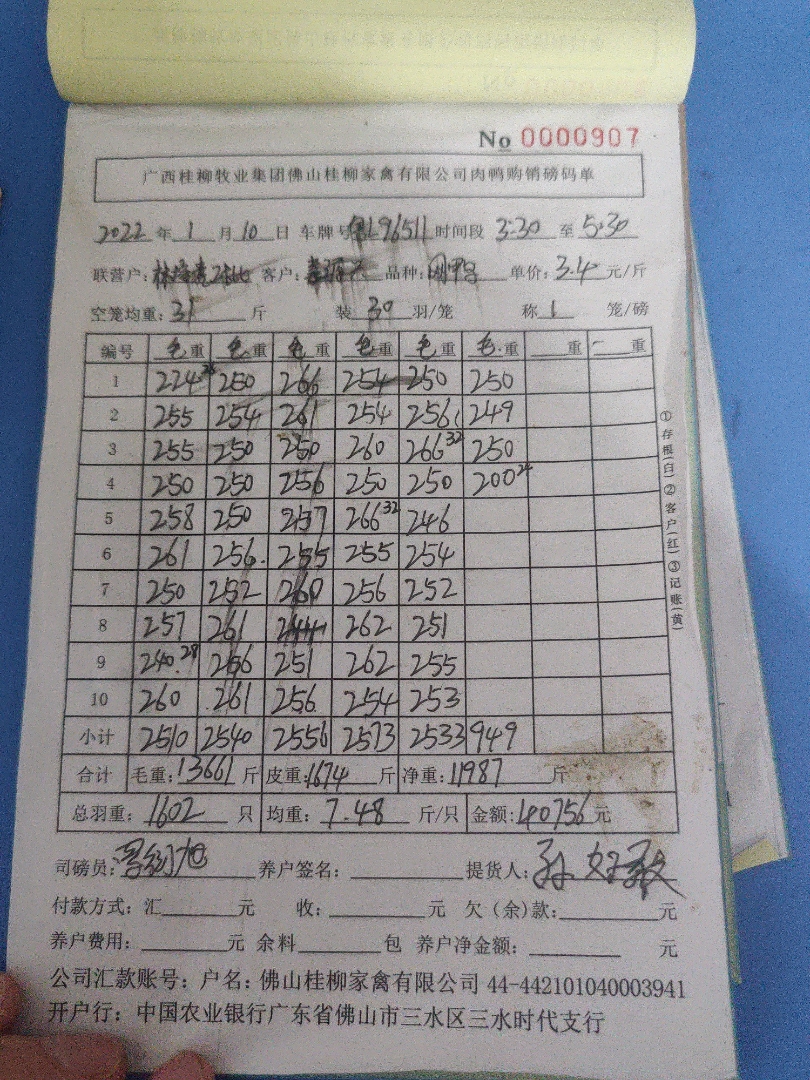 No 0000907
广西桂柳牧业集团佛山桂柳家禽有限公司肉鸭购销磅码单
2022 年 1 月 10 日 车牌号 L96511 时间段 3:30 至 5:30
联营户: 客户: 品种: 单价: 3.4 元/斤
空笼均重: 31 斤 装 30 羽/笼 称 1 笼/磅
编号 毛重 毛重 毛重 毛重 毛重 毛重 重 重
1 224 250 266 254 250 250
2 255 254 261 254 256 249
3 255 250 250 260 266 32 250
4 250 250 256 250 250 200 24
5 258 250 257 266 32 246
6 261 256 255 255 254
7 250 252 260 256 252
8 257 261 244 262 251
9 240 28 256 251 262 255
10 260 261 256 254 253
小计 2510 2540 2556 2573 2533 949
合计 毛重: 13661 斤 皮重: 1674 斤 净重: 11987 斤
总羽重: 1602 只 均重: 7.48 斤/只 金额: 40756 元
司磅员: 养户签名: 提货人:
付款方式: 汇 元 收: 元 欠(余)款: 元
养户费用: 元 余料 包 养户净金额: 元
公司汇款账号: 户名: 佛山桂柳家禽有限公司 44-442101040003941
开户行: 中国农业银行广东省佛山市三水区三水时代支行
①存根(白)②客户(红)③记账(黄)